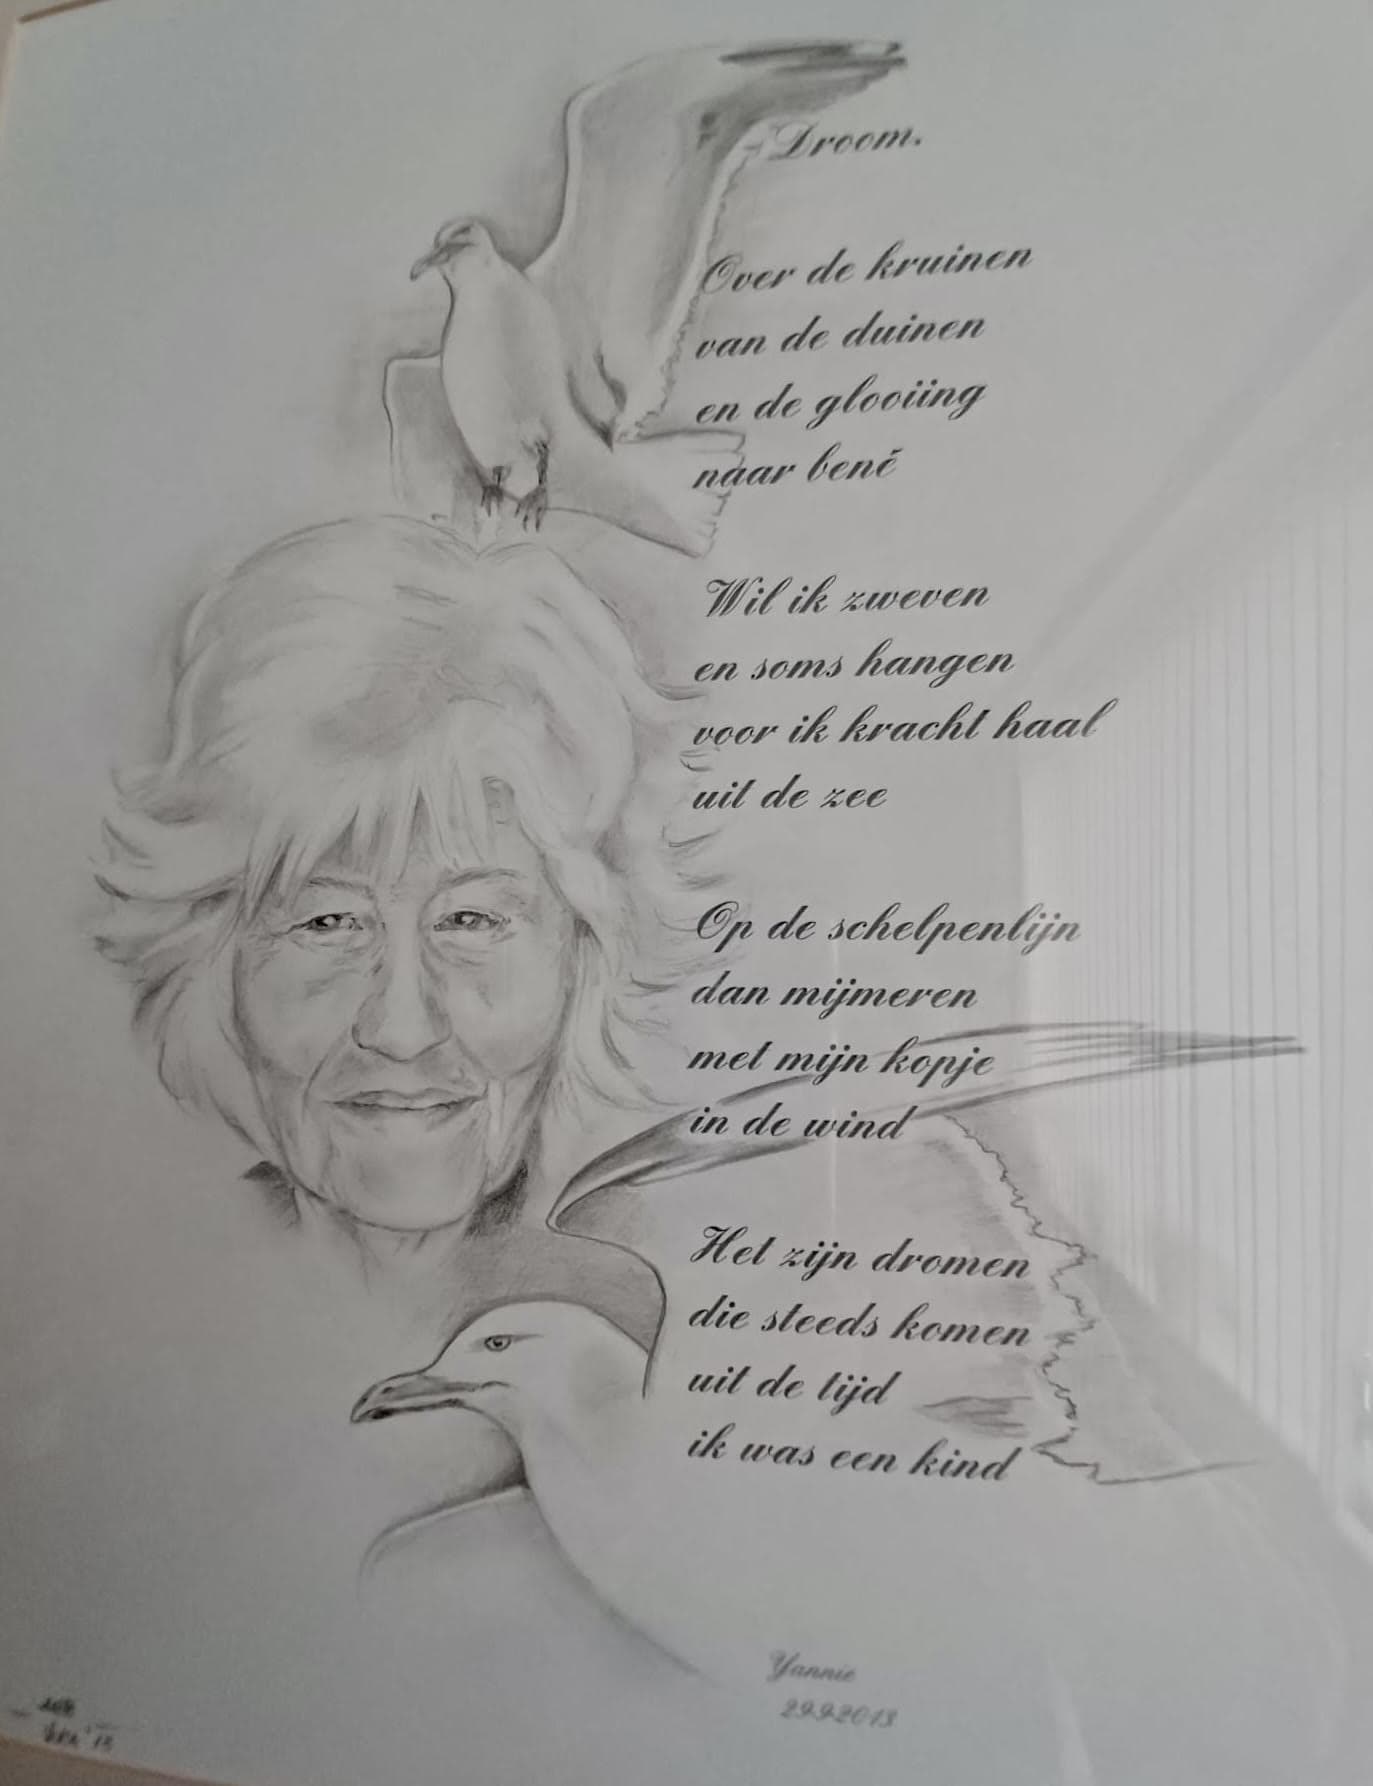 Droom.
Over de kruinen
van de duinen
en de glooiing
naar bené
Wil ik zweven
en soms hangen
voor ik kracht haal
uit de zee
Op de schelpenlijn
dan mijmeren
met mijn kopje
in de wind
Het zijn dromen
die steeds komen
uit de tijd
ik was een kind
Yannie
29.9.2013